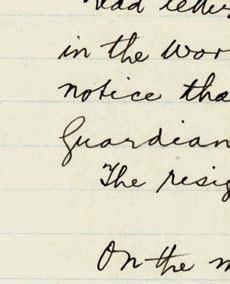 Read letter
in the Wor
notice tha
Guardian
The resig
On the m